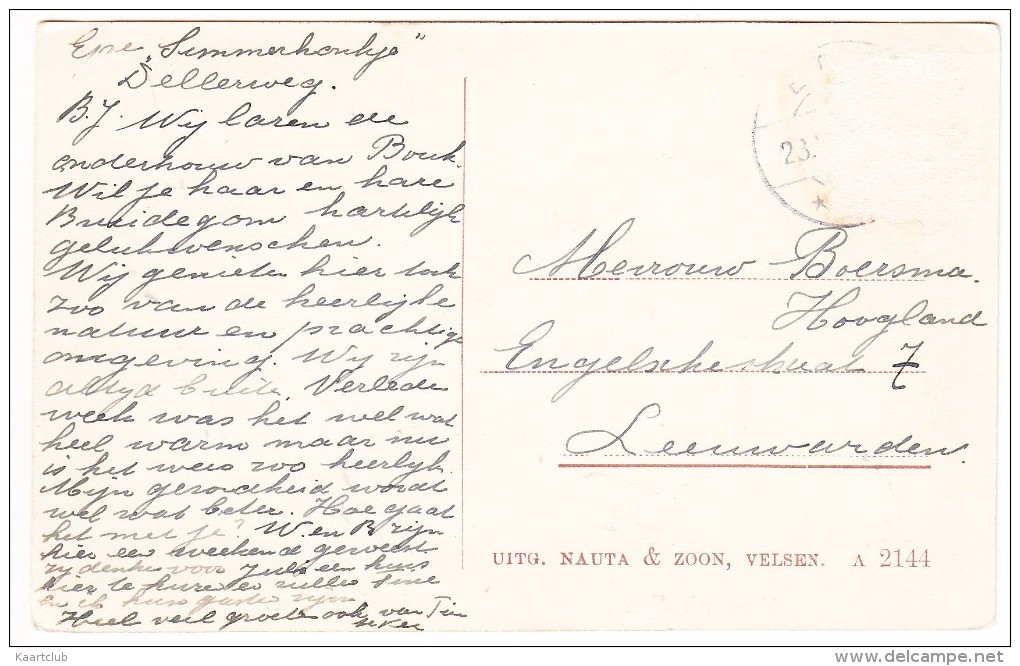 Epe "Simmerhonkje"
Dellerweg.
B.J. Wij laren de
onderhouw van Bouk.
Wil je haar en hare
Bruidegom hartelijk
gelukwenschen.
Wij genieten hier toch
zoo van de heerlijke
natuur en prachtige
omgeving. Wij zijn
altijd buiten. Verleden
week was het wel wat
heel warm maar nu
is het weer zoo heerlijk.
Mijn gezondheid wordt
wel wat beter. Hoe gaat
het met je? W. en B zijn
hier een weekend geweest
zij denken voor Juli een huis
hier te huren en zullen
en ik hun gasten zijn
Heel veel groeten ook van
23.
Mevrouw Boersma.
Hoogland
Engelschestraat 7
Leeuwarden.
UITG. NAUTA & ZOON, VELSEN. A 2144
Kaartclub
www.delcampe.net